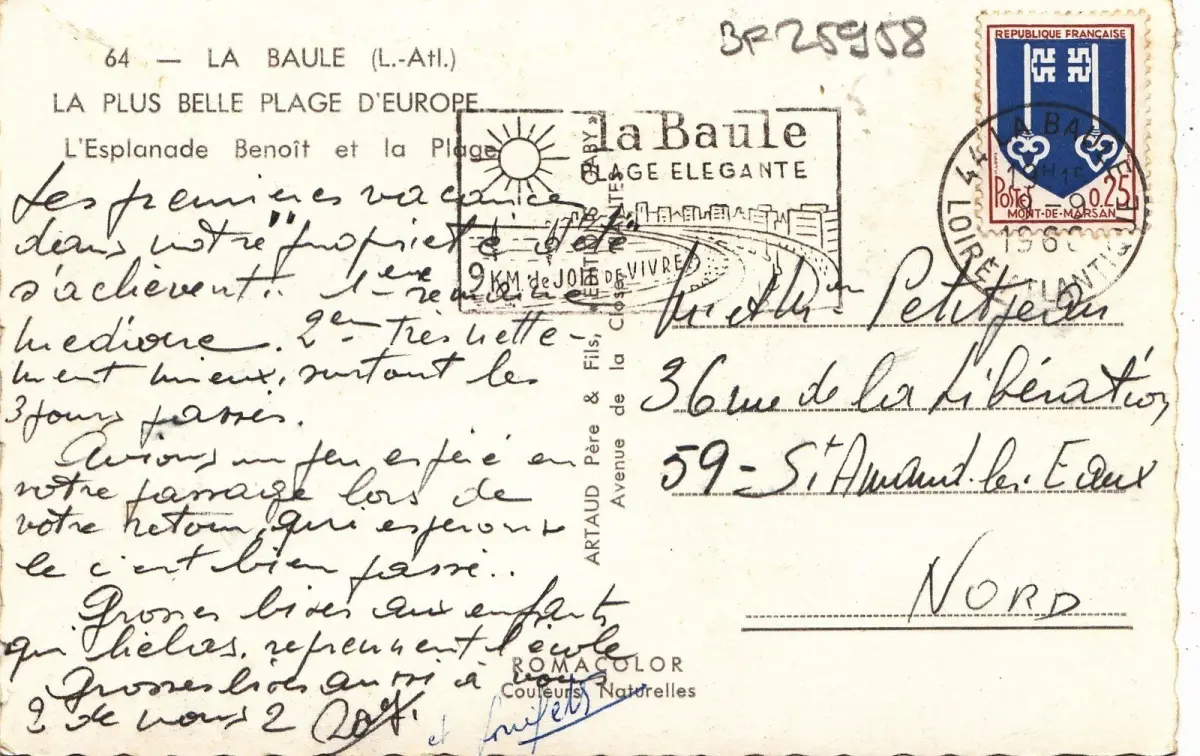 BF25958
64 — LA BAULE (L.-Atl.)
LA PLUS BELLE PLAGE D'EUROPE
L'Esplanade Benoît et la Plage
REPUBLIQUE FRANÇAISE
POSTES 0,25
MONT-DE-MARSAN
la Baule
PLAGE ELEGANTE
9 KM. de JOIE DE VIVRE
44 LA BAULE
LOIRE ATLANTIQUE
Les premières vacances
dans notre "propriété d'été"
s'achèvent!! 1ère semaine
médiocre. 2em très nette-
ment mieux, surtout les
3 jours passés.
Avions un peu espéré en
votre passage lors de
votre retour, qui esperons
le c'est bien passé..
Grosses bises aux enfants
qui hélas, reprennent l'école
Grosses bises aussi à vous
2 de nous 2
et
ARTAUD Père & Fils, Éditeurs « GABY »
Avenue de la Close
M et Mme Petitjean
36 rue de la Libération
59 - St Amand-les-Eaux
NORD
ROMACOLOR
Couleurs Naturelles